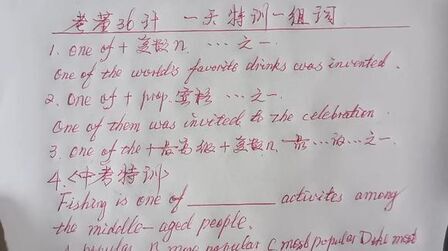 考前36计 一天特训一组词
1. one of + 复数n. … 之一.
One of the world's favorite drinks was invented.
2. one of + prop. 宾格 …之一.
One of them was invited to the celebration
3. one of the +最高级 + 复数n. 最…的…之一.
4.<中考特训>
Fishing is one of ________ activites among
the middle-aged people.
A. popular B. more popular C most popular D. the most